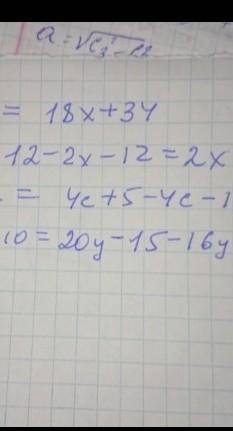 a = √c₂² - c²
= 18x + 34
12 - 2x - 12 = 2x
= 4c + 5 - 4c - 1
10 = 20y - 15 - 16y